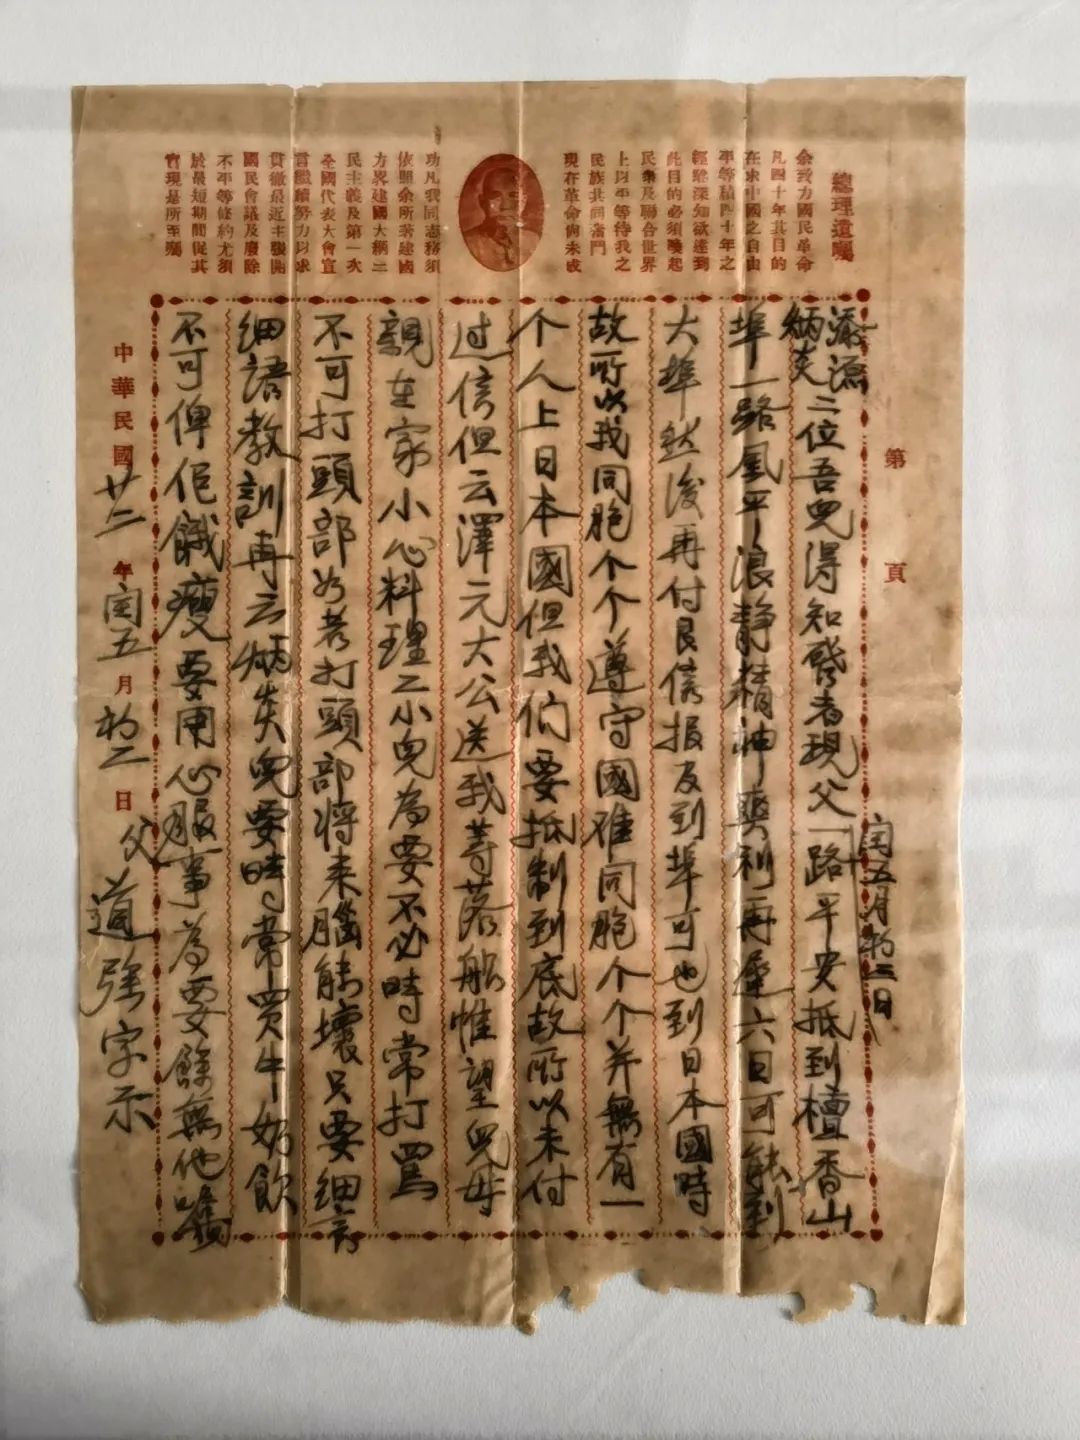 總理遺囑
余致力國民革命
凡四十年其目的
在求中國之自由
平等積四十年之
經驗深知欲達到
此目的必須喚起
民眾及聯合世界
上以平等待我之
民族共同奮鬥
現在革命尚未成
功凡我同志務須
依照余所著建國
方畧建國大綱三
民主義及第一次
全國代表大會宣
言繼續努力以求
貫徹最近主張開
國民會議及廢除
不平等條約尤須
於最短期間促其
實現是所至囑
第 頁
閏五月初三日
添源
炳炎二位吾兒得知啓者現父一路平安抵到檀香山
埠一路風平浪静精神爽利再遲六日可能到
大埠然後再付艮信报及到埠可也到日本國時
故所以我同胞个个遵守國难同胞个个并無有一
个人上日本國但我们要抵制到底故所以未付
过信但云澤元大公送我等落船惟望兒母
親在家小心料理二小兒為要不必時常打罵
不可打頭部如若打頭部将来腦能壞只要细言
细語教訓再云炳炎兒要時常買牛奶飲
不可俾佢餓瘦要用心服事為要餘無他囑
中華民國廿二年閏五月初二日父道强字示